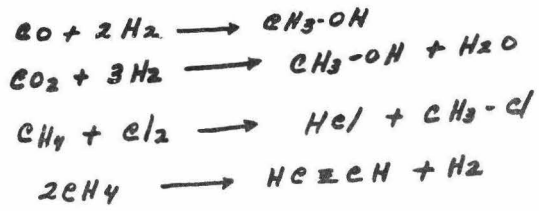 CO + 2H2 → CH3-OH
CO2 + 3H2 → CH3-OH + H2O
CH4 + Cl2 → HCl + CH3-Cl
2CH4 → HC≡CH + H2